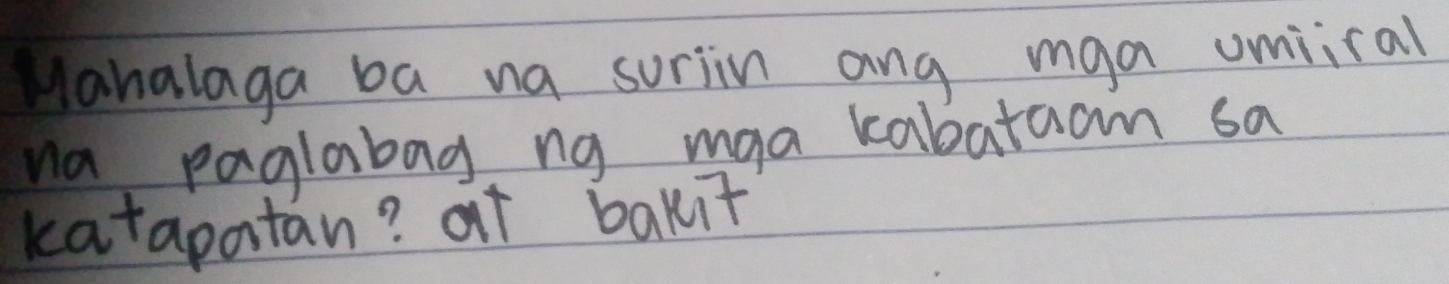 Mahalaga ba na suriin ang mga umiiral
na paglabag ng mga kabataam sa
katapatan? at bakit